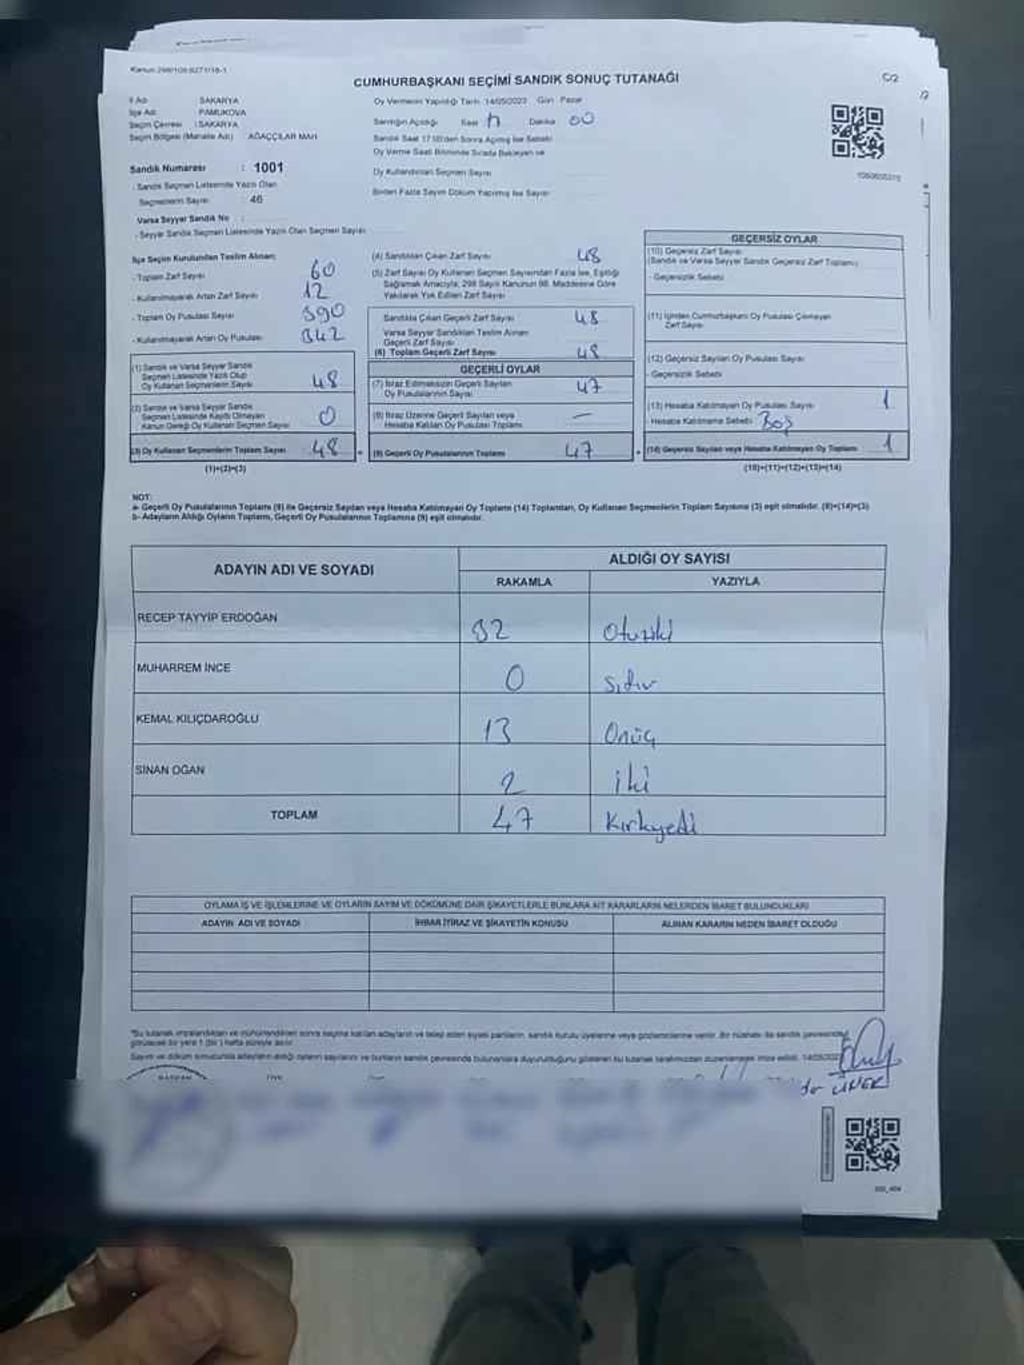 Kanun:298/105:6271/18-1
CUMHURBAŞKANI SEÇİMİ SANDIK SONUÇ TUTANAĞI
İl Adı : SAKARYA
İlçe Adı : PAMUKOVA
Seçim Çevresi : SAKARYA
Seçim Bölgesi (Mahalle Adı) : AĞAÇÇILAR MAH.
Sandık Numarası : 1001
- Sandık Seçmen Listesinde Yazılı Olan
Seçmenlerin Sayısı : 46
Varsa Seyyar Sandık No :
- Seyyar Sandık Seçmen Listesinde Yazılı Olan Seçmen Sayısı
Oy Vermenin Yapıldığı Tarih: 14/05/2023 Gün: Pazar
Sandığın Açıldığı Saat 17 Dakika 00
Sandık Saat 17:00'den Sonra Açılmış İse Sebebi
Oy Verme Saati Bitiminde Sırada Bekleyen ve
Oy Kullandırılan Seçmen Sayısı
Birden Fazla Sayım Döküm Yapılmış İse Sayısı
İlçe Seçim Kurulundan Teslim Alınan:
- Toplam Zarf Sayısı 60
- Kullanılmayarak Artan Zarf Sayısı 12
- Toplam Oy Pusulası Sayısı 390
- Kullanılmayarak Artan Oy Pusulası 342
(1) Sandık ve Varsa Seyyar Sandık
Seçmen Listesinde Yazılı Olup
Oy Kullanan Seçmenlerin Sayısı 48
(2) Sandık ve Varsa Seyyar Sandık
Seçmen Listesinde Kayıtlı Olmayan
Kanun Gereği Oy Kullanan Seçmen Sayısı 0
(3) Oy Kullanan Seçmenlerin Toplam Sayısı 48
(1)+(2)=(3)
(4) Sandıktan Çıkan Zarf Sayısı 48
(5) Zarf Sayısı Oy Kullanan Seçmen Sayısından Fazla İse, Eşitliği
Sağlamak Amacıyla, 298 Sayılı Kanunun 98. Maddesine Göre
Yakılarak Yok Edilen Zarf Sayısı
Sandıkta Çıkan Geçerli Zarf Sayısı 48
Varsa Seyyar Sandıktan Teslim Alınan
Geçerli Zarf Sayısı
(6) Toplam Geçerli Zarf Sayısı 48
GEÇERLİ OYLAR
(7) İtiraz Edilmeksizin Geçerli Sayılan
Oy Pusulalarının Sayısı 47
(8) İtiraz Üzerine Geçerli Sayılan veya
Hesaba Katılan Oy Pusulası Toplamı —
(9) Geçerli Oy Pusulalarının Toplamı 47
GEÇERSİZ OYLAR
(10) Geçersiz Zarf Sayısı
(Sandık ve Varsa Seyyar Sandık Geçersiz Zarf Toplamı)
- Geçersizlik Sebebi
(11) İçinden Cumhurbaşkanı Oy Pusulası Çıkmayan
Zarf Sayısı
(12) Geçersiz Sayılan Oy Pusulası Sayısı
- Geçersizlik Sebebi
(13) Hesaba Katılmayan Oy Pusulası Sayısı 1
- Hesaba Katılmama Sebebi Boş
(14) Geçersiz Sayılan veya Hesaba Katılmayan Oy Toplamı 1
(10)+(11)+(12)+(13)=(14)
NOT:
a- Geçerli Oy Pusulalarının Toplamı (9) ile Geçersiz Sayılan veya Hesaba Katılmayan Oy Toplamı (14) Toplamları, Oy Kullanan Seçmenlerin Toplam Sayısına (3) eşit olmalıdır. (9)+(14)=(3)
b- Adayların Aldığı Oyların Toplamı, Geçerli Oy Pusulalarının Toplamına (9) eşit olmalıdır.
ADAYIN ADI VE SOYADI
ALDIĞI OY SAYISI
RAKAMLA YAZIYLA
RECEP TAYYİP ERDOĞAN 32 Otuziki
MUHARREM İNCE 0 Sıfır
KEMAL KILIÇDAROĞLU 13 Onüç
SİNAN OĞAN 2 iki
TOPLAM 47 Kırkyedi
OYLAMA İŞ VE İŞLEMLERİNE VE OYLARIN SAYIM VE DÖKÜMÜNE DAİR ŞİKAYETLERLE BUNLARA AİT KARARLARIN NELERDEN İBARET BULUNDUKLARI
ADAYIN ADI VE SOYADI
İHBAR İTİRAZ VE ŞİKAYETİN KONUSU
ALINAN KARARIN NEDEN İBARET OLDUĞU
*Bu tutanak imzalandıktan ve mühürlendikten sonra seçime katılan adayların ve talep eden siyasi partilerin, sandık kurulu üyelerine veya gözlemcilerine verilir. Bir nüshası da sandık çevresinde
görülecek bir yere 1 (bir) hafta süreyle asılır.
Sayım ve döküm sonucunda adayların aldığı oyların sayılarını ve bunların sandık çevresinde bulunanlara duyurulduğunu gösteren bu tutanak tarafımızdan düzenlenerek imza edildi. 14/05/2023
BAŞKAN
ÜNER